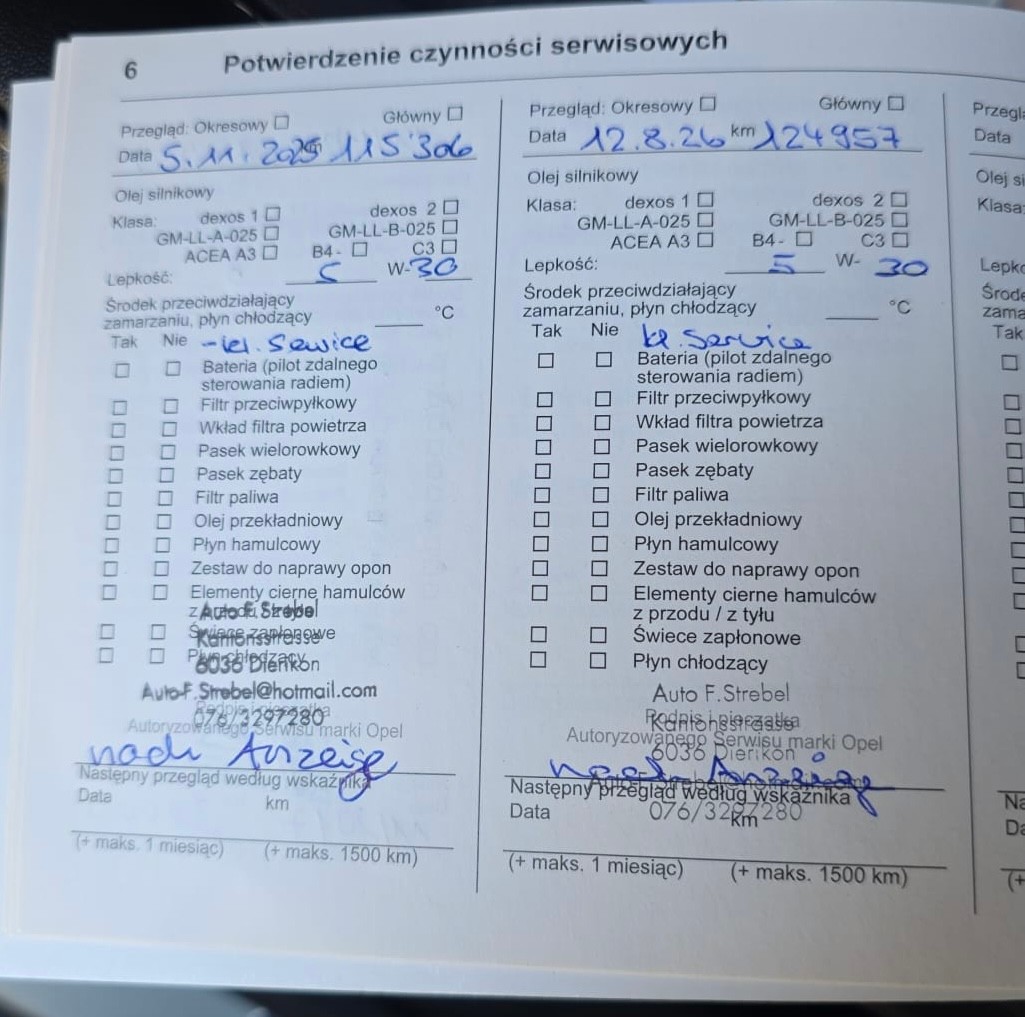 6
Potwierdzenie czynności serwisowych
Przegląd: Okresowy ☐ Główny ☐
Data 5.11.2025 115'306
Olej silnikowy
Klasa: dexos 1 ☐ dexos 2 ☐
GM-LL-A-025 ☐ GM-LL-B-025 ☐
ACEA A3 ☐ B4- ☐ C3 ☐
Lepkość: 5 W-30
Środek przeciwdziałający
zamarzaniu, płyn chłodzący ____ °C
Tak Nie -kl. Service
☐ ☐ Bateria (pilot zdalnego
sterowania radiem)
☐ ☐ Filtr przeciwpyłkowy
☐ ☐ Wkład filtra powietrza
☐ ☐ Pasek wielorowkowy
☐ ☐ Pasek zębaty
☐ ☐ Filtr paliwa
☐ ☐ Olej przekładniowy
☐ ☐ Płyn hamulcowy
☐ ☐ Zestaw do naprawy opon
☐ ☐ Elementy cierne hamulców
Auto F. Strebel
☐ ☐ Świece zapłonowe
Kantonsstrasse
☐ ☐ Płyn chłodzący
6036 Dierikon
Auto-F.Strebel@hotmail.com
076/3297280
Autoryzowanego Serwisu marki Opel
nach Anzeige
Następny przegląd według wskaźnika
Data km
(+ maks. 1 miesiąc) (+ maks. 1500 km)
Przegląd: Okresowy ☐ Główny ☐
Data 12.8.26 km 124957
Olej silnikowy
Klasa: dexos 1 ☐ dexos 2 ☐
GM-LL-A-025 ☐ GM-LL-B-025 ☐
ACEA A3 ☐ B4- ☐ C3 ☐
Lepkość: 5 W- 30
Środek przeciwdziałający
zamarzaniu, płyn chłodzący ____ °C
Tak Nie kl. Service
☐ ☐ Bateria (pilot zdalnego
sterowania radiem)
☐ ☐ Filtr przeciwpyłkowy
☐ ☐ Wkład filtra powietrza
☐ ☐ Pasek wielorowkowy
☐ ☐ Pasek zębaty
☐ ☐ Filtr paliwa
☐ ☐ Olej przekładniowy
☐ ☐ Płyn hamulcowy
☐ ☐ Zestaw do naprawy opon
☐ ☐ Elementy cierne hamulców
z przodu / z tyłu
☐ ☐ Świece zapłonowe
☐ ☐ Płyn chłodzący
Auto F.Strebel
Podpis i pieczątka
Kantonsstrasse
Autoryzowanego Serwisu marki Opel
6036 Dierikon
nach Anzeige
Następny przegląd według wskaźnika
076/3297280
Data km
(+ maks. 1 miesiąc) (+ maks. 1500 km)
Data
Klasa:
Tak